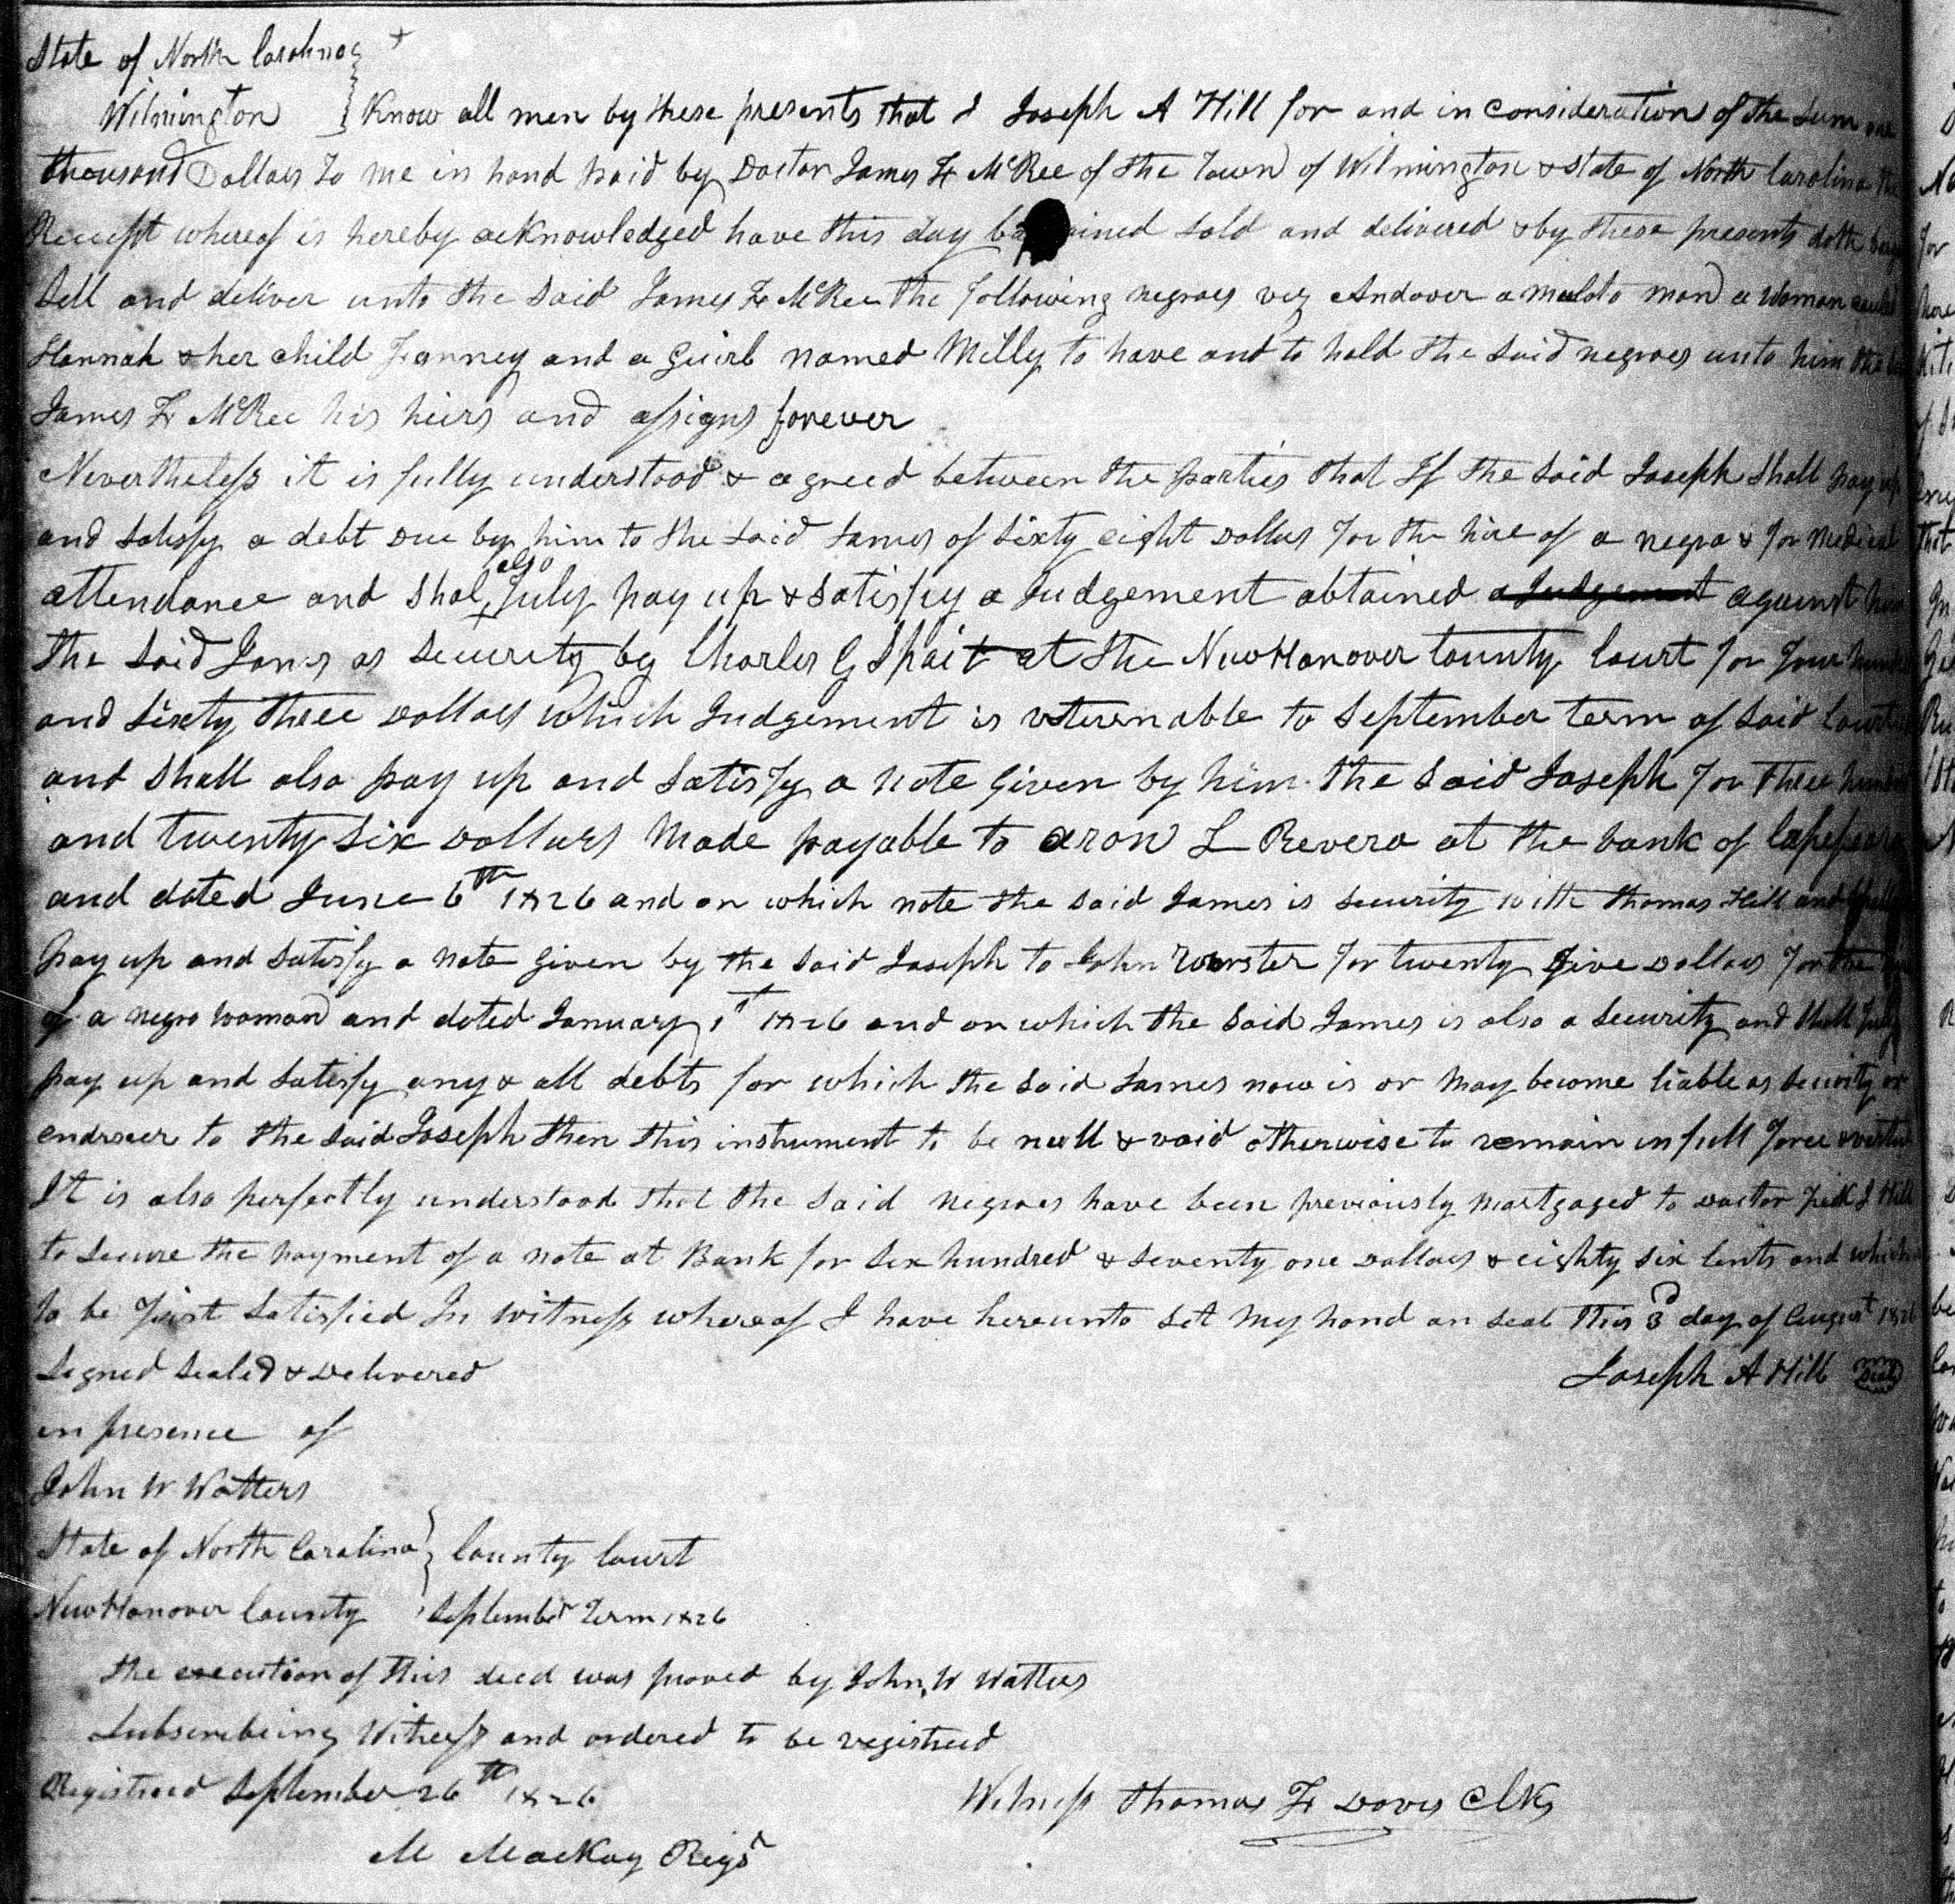 State of North Carolina
Wilmington } Know all men by these presents that I Joseph A Hill for and in consideration of the sum one
thousand Dollars to me in hand paid by Doctor James F McRee of the Town of Wilmington & state of North Carolina the
Receipt whereof is hereby acknowledged have this day ba ained sold and delivered & by these presents doth
sell and deliver unto the said James F McRee the following negroes viz Andover a mulato man a woman called
Hannah & her child Fanney and a guirl named Milly to have and to hold the said negroes unto him the
James F McRee his heirs and assigns forever
Nevertheless it is fully understood & agreed between the parties that If the said Joseph shall pay up
and satisfy a debt due by him to the said James of sixty eight Dollars for the hire of a negro & for medical
attendance and shal also fully pay up & satisfy a Judgement obtained a Judgement against him
the said James as security by Charles G Spait at the New Hanover County Court for four
and sixty three Dollars which Judgement is returnable to September term of said Court
and shall also pay up and satisfy a note given by him the said Joseph for three hundred
and twenty six Dollars made payable to aron L Revera at the bank of Capefear
and dated June 6th 1826 and on which note the said James is security with Thomas Hill and shall
pay up and satisfy a note given by the said Joseph to John Worster for twenty five Dollars for the
of a negro woman and dated January 1st 1826 and on which the said James is also a security and shall fully
pay up and satisfy any & all debts for which the said James now is or may become liable as security or
endrseer to the said Joseph then this instrument to be null & void otherwise to remain in full force & virtue
It is also perfectly understood that the said negroes have been previously mortgaged to Doctor J Hill
to secure the payment of a note at Bank for six hundred & seventy one Dollars & eighty six Cents and which
to be first satisfied In witness whereof I have hereunto set my hand an seal this 3d day of August 1826
Signed sealed & Delivered Joseph A Hill seal
in presence of
John W Watters
State of North Carolina } County Court
New Hanover County September Term 1826
the execution of this deed was proved by John W Watters
Subscribeing Witness and ordered to be registered
Registered September 26th 1826
Witness Thomas F Davis Clk
M MacKay Regsr